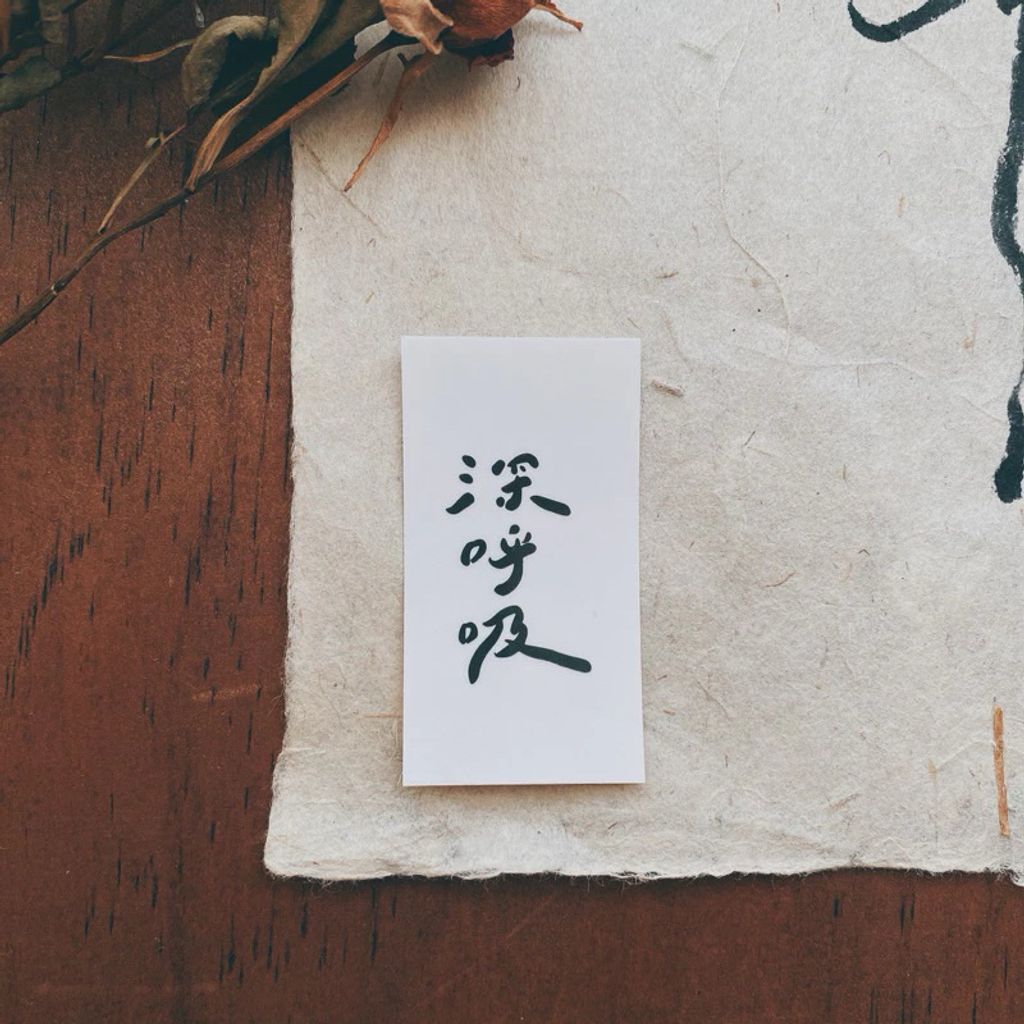 深
呼
吸